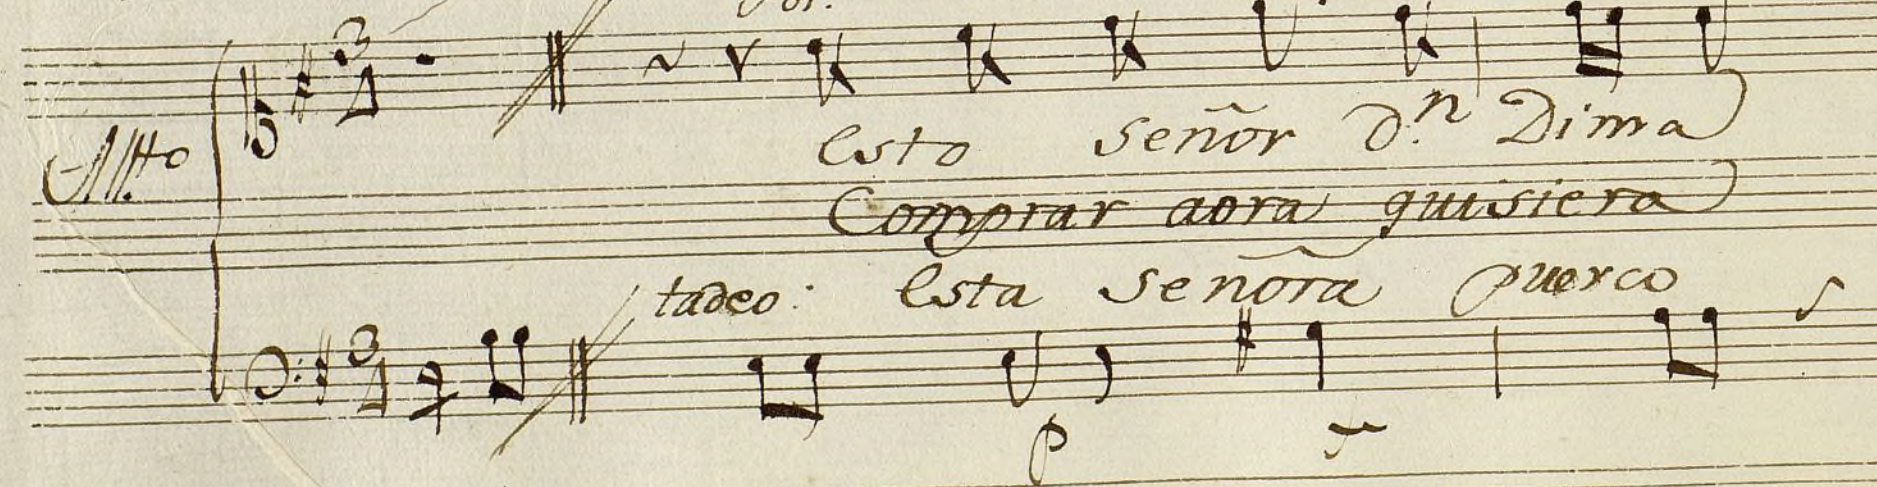 Por.
All.tto
Esto Señor D.n Dima
Comprar aora quisiera
tadeo: Esta Señora puerco
p